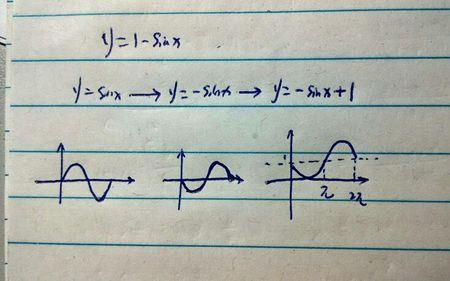 y=1-sinx
y=sinx → y=-sinx → y=-sinx+1
1
π 2π